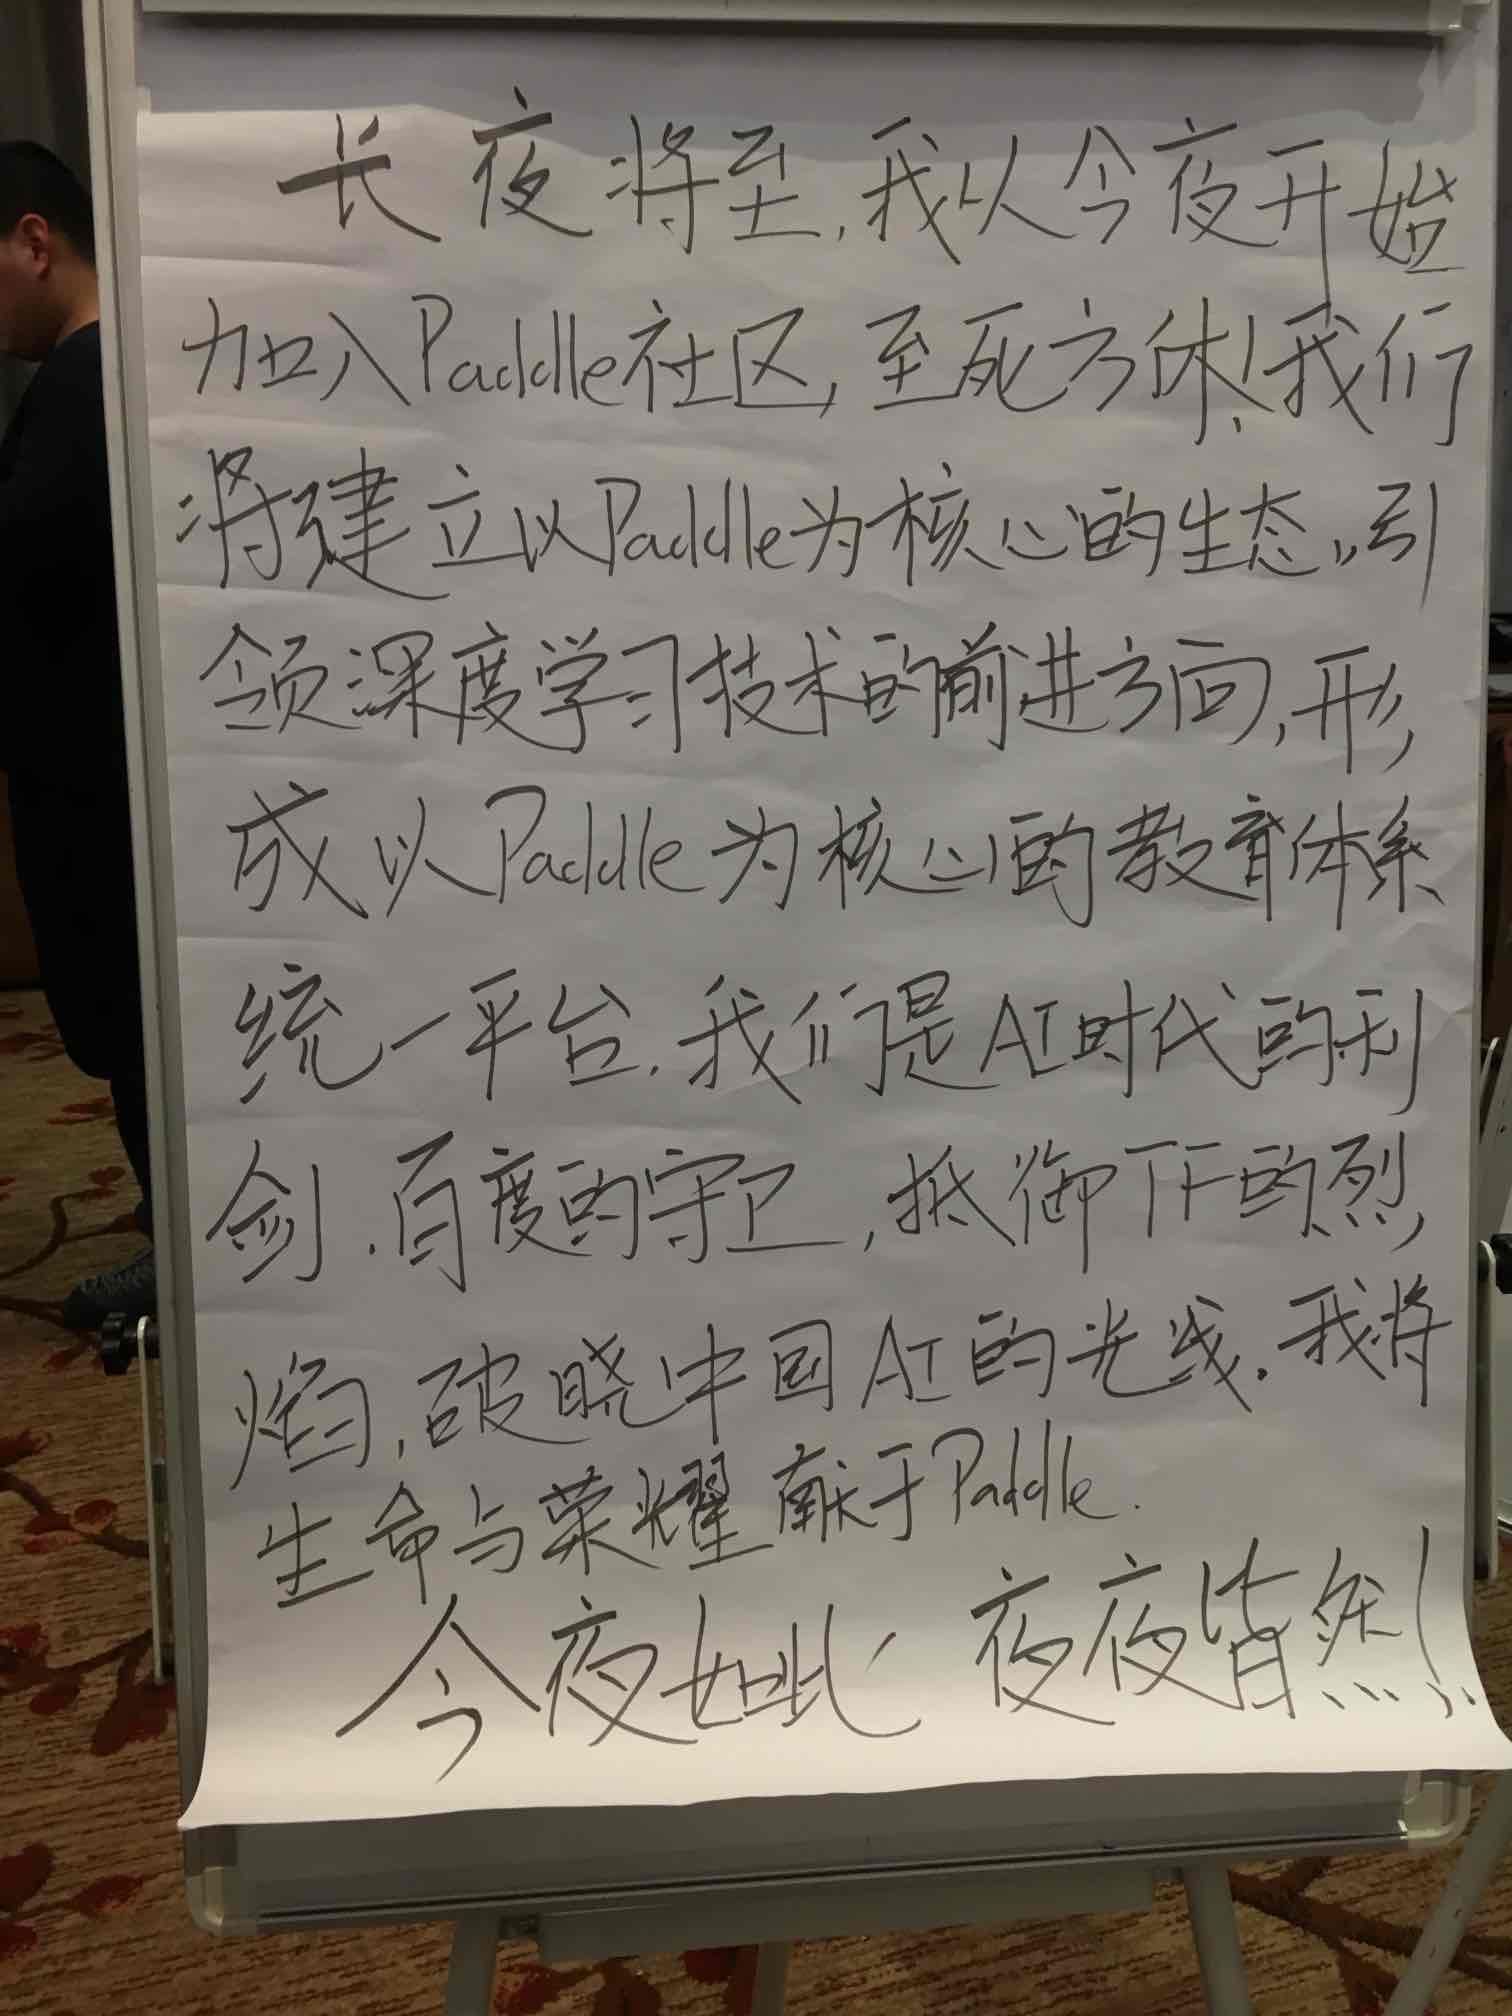 长夜将至,我从今夜开始
加入Paddle社区,至死方休!我们
将建立以Paddle为核心的生态,引
领深度学习技术的前进方向,形
成以Paddle为核心的教育体系
统一平台.我们是AI时代的利
剑.百度的守卫,抵御TF的烈
焰,破晓中国AI的光线.我将
生命与荣耀献于Paddle.
今夜如此、夜夜皆然!